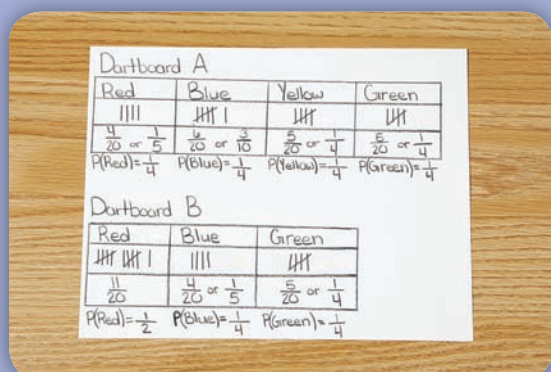 Dartboard A
Red Blue Yellow Green
|||| 卌 | 卌 卌
4/20 or 1/5 6/20 or 3/10 5/20 or 1/4 5/20 or 1/4
P(Red)=1/4 P(Blue)=1/4 P(Yellow)=1/4 P(Green)=1/4
Dartboard B
Red Blue Green
卌 卌 | |||| 卌
11/20 4/20 or 1/5 5/20 or 1/4
P(Red)=1/2 P(Blue)=1/4 P(Green)=1/4